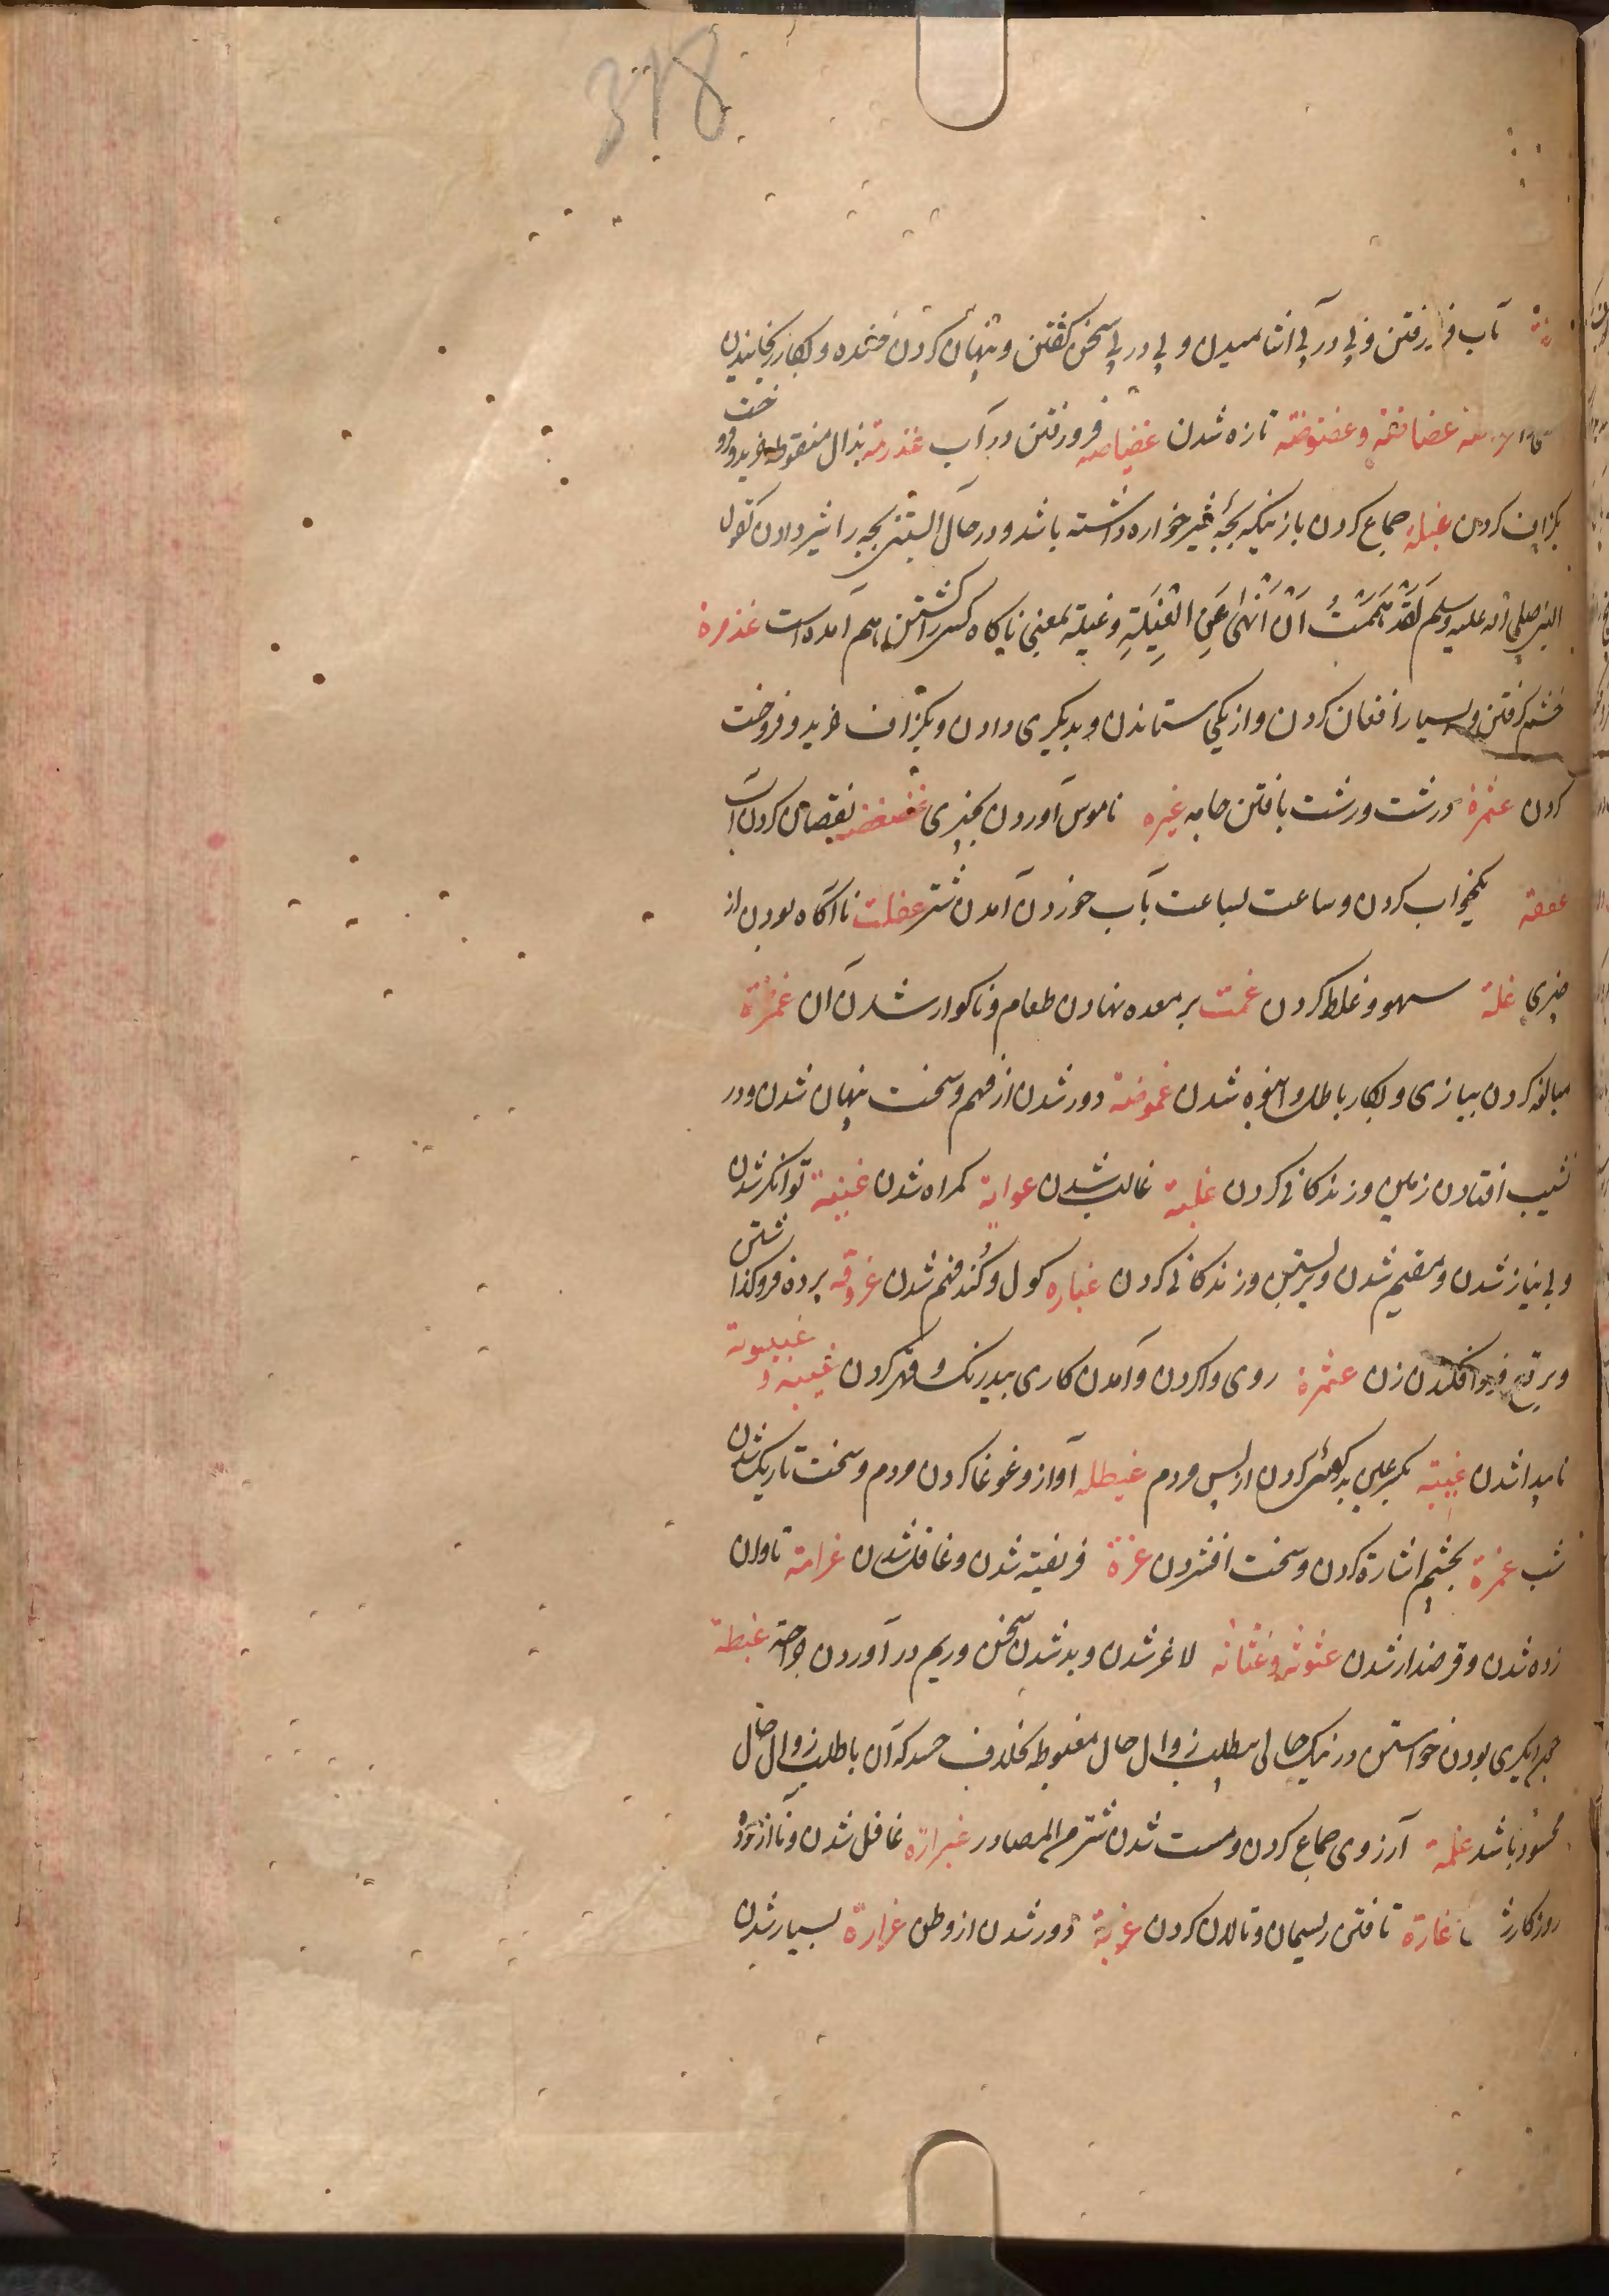 318
بآب فرو رفتن و پی در پی آشامیدن و پی در پی سخن کفتن و پنهان کردن خنده و بکار
غضاضة و غضوضة تازه شدن غضیاصه فرو رفتن در آب غذرمة بذال منقوطه خرید و فروخت
بکزاف کردن غیلة جماع کردن با زنیکه بچهٔ شیر خواره داشته باشد و در حال آبستنی بچه را شیر دادن کقول
النبی صلی الله علیه وسلم لَقَدْ هَمَمْتُ اَنْ اَنْهٰی عَنِ الْغِیْلَةِ و غیلة بمعنی ناکاه کسی را کشتن هم آمده است غذمرة
خشم کرفتن و بسیار افغان کردن و از یکی ستاندن و بدیکری دادن و بکزاف خرید و فروخت
کردن غثمرة درشت درشت بافتن جامه غیره ناموس آوردن بچیزی غضغضة نقصان کردن آب
غفقة یکخواب کردن و ساعت بساعت بآب خوردن آمدن شتر غفلت ناآکاه بودن از
چیزی غلة سهو و غلط کردن غمت بر معده نهادن طعام و ناکوار شدن آن
مبالغه کردن ببازی و بکار باطل و انبوه شدن غموضة دور شدن از فهم و سخت پنهان شدن و در
نشیب افتادن زمین و زندکانی کردن غلبة غالب شدن غوایة کمراه شدن غنیة توانکر شدن
و بی نیاز شدن و مقیم شدن و زیستن و زندکانی کردن غباره کول و کند فهم شدن پرده فرو کذاشتن
و برقع فرو افکندن زن غثمرة روی واکردن و آمدن کاری بیدرنک و قهر کردن غیبة و غیبوبة
ناپیدا شدن غیبة بکسر غین بدکوئی کردن از پس مردم غیطلة آواز و غوغا کردن مردم و سخت تاریک شدن
شب غمزة بچشم اشارة کردن و سخت افشردن غرة فریفته شدن و غافل شدن غرامة تاوان
زده شدن و قرضدار شدن غثوثة و غثاثة لاغر شدن و بد شدن سخن و ریم در آوردن جراحة غبطة
دیکری بودن خواستن در نیک حالی بیطلب زوال حال مغبوط بخلاف حسد که آن با طلب زوال حال
محسود باشد غلمة آرزوی جماع کردن و مست شدن شتر م المصادر غرارة غافل شدن و ناآزموده
روزکار غارة تافتن ریسمان و تالان کردن غربة دور شدن از وطن غزارة بسیار شدن